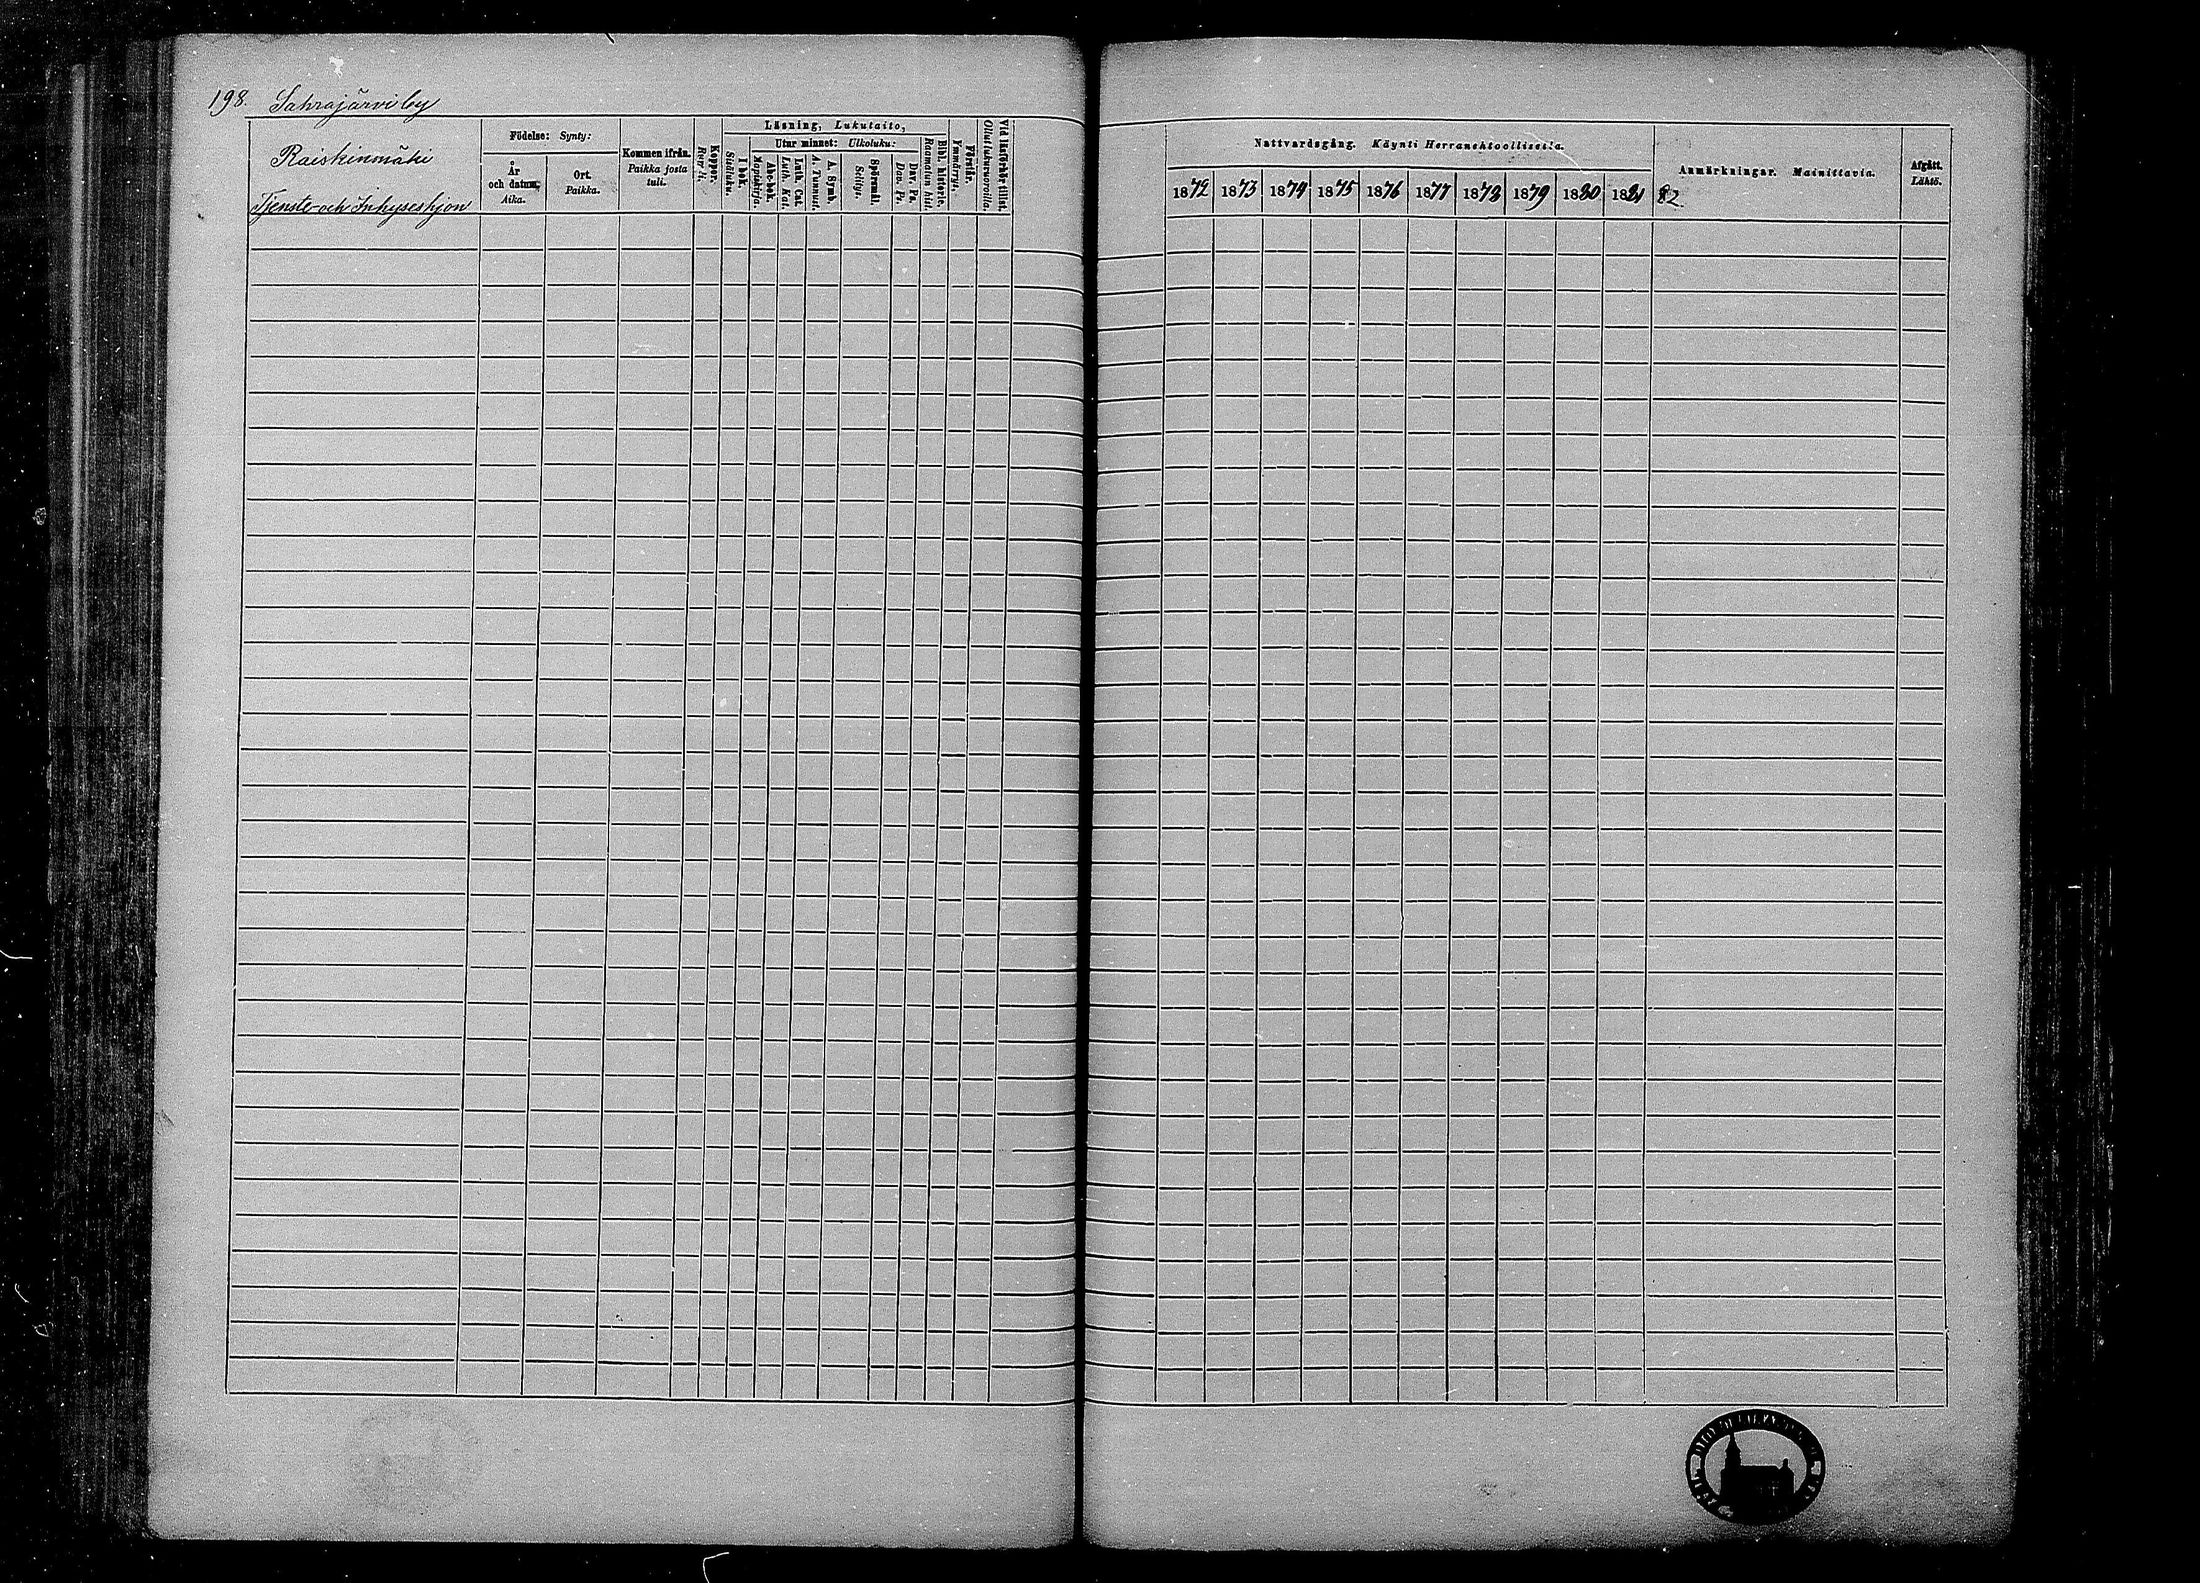 198. Sahrajärvi by
Raiskinmäki
Tjenste- och Inhyseshjon
Födelse: Synty:
År och datum, Aika.
Ort. Paikka.
Kommen ifrån. Paikka josta tuli.
Koppor. Rupuli.
Läsning, Lukutaito,
I bok. Sisäluku.
Utur minnet: Ulkoluku:
Abc-bok.
Luth. Cat. Luth. Kat.
A. Symb. A. Tunnust.
Spörsmål. Selitys.
Dav. Ps. Dav. Ps.
Bibl. historie. Raamatun hist.
Förstår. Ymmärrys.
Vid läsförhör tillst. Ollut lukuvuorolla.
Nattvardsgång. Käynti Herranehtoollisella.
1872 1873 1874 1875 1876 1877 1878 1879 1880 1881 82.
Anmärkningar. Mainittavia.
Afgått. Lähtö.